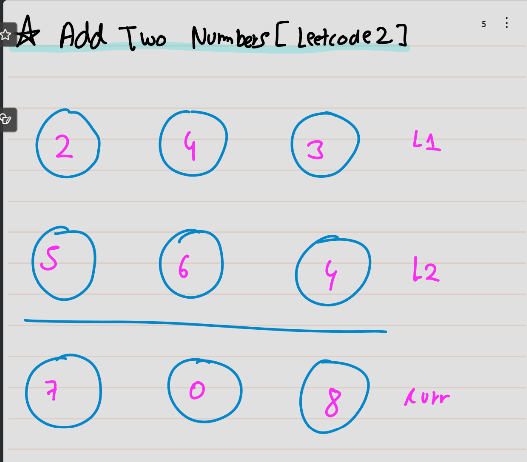 5
☆ Add Two Numbers [Leetcode 2]
2 4 3 L1
5 6 4 L2
7 0 8 curr